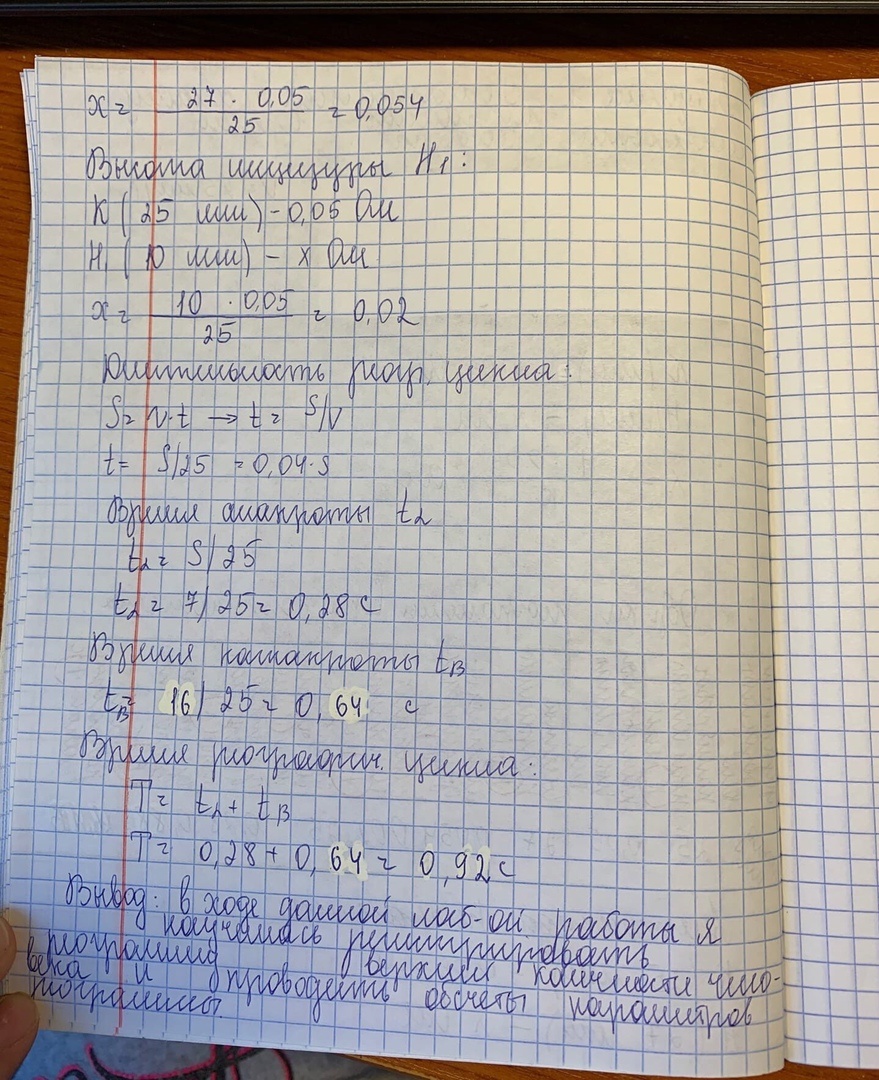 x = 27 · 0,05 / 25 = 0,054
Высота инцизуры H₁:
К (25 мм) - 0,05 Ом
H₁ (10 мм) - x Ом
x = 10 · 0,05 / 25 = 0,02
Длительность реогр. цикла:
S = v·t → t = S/v
t = S/25 = 0,04·S
Время анакроты tα
tα = S/25
tα = 7/25 = 0,28 с
Время катакроты tβ
tβ = 16/25 = 0,64 с
Время реографич. цикла:
T = tα + tβ
T = 0,28 + 0,64 = 0,92 с
Вывод: в ходе данной лаб-ой работы я
научилась регистрировать
реограмму верхних конечности чело-
века и проводить обсчеты параметров
реограммы.